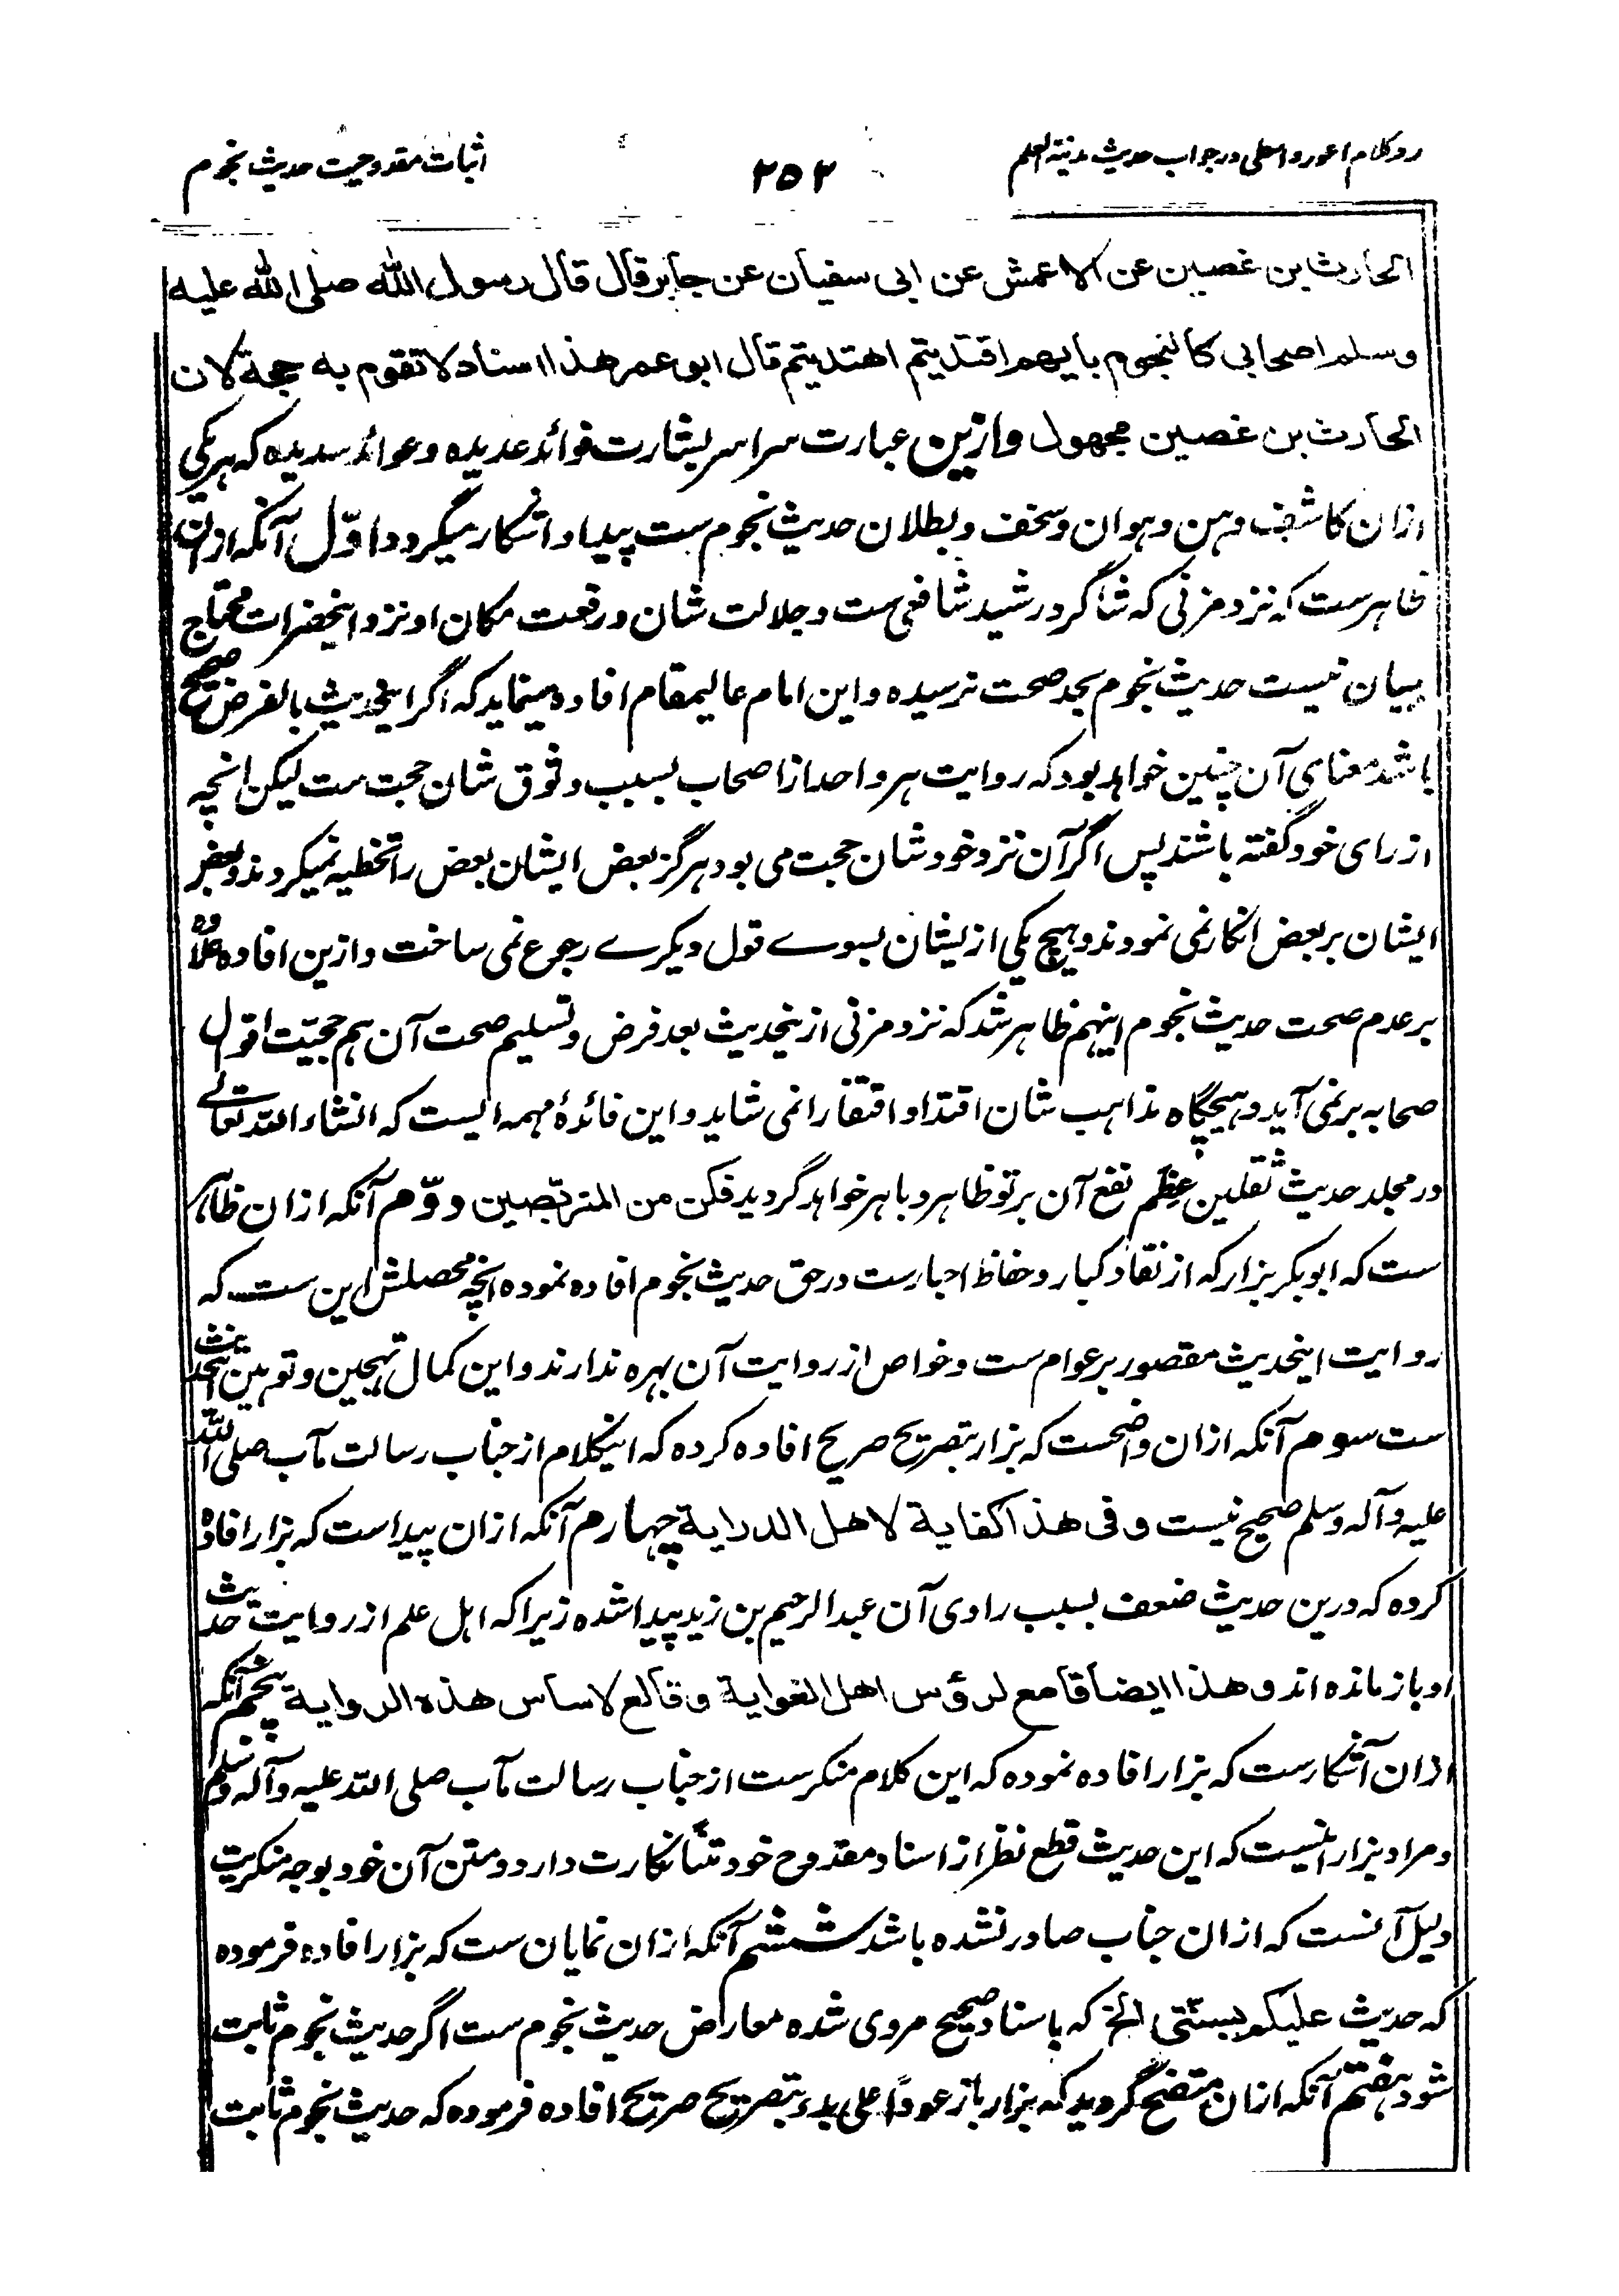 رد کلام اعور واسطی در جواب حدیث مدینة العلم
۲۵۲
اثبات مقدوحیت حدیث نجوم
الحارث بن غصین عن الاعمش عن ابی سفیان عن جابر قال قال رسول الله صلی الله علیه
وسلم اصحابی کالنجوم بایهم اقتدیتم اهتدیتم قال ابو عمر هذا اسناد لا تقوم به حجة لان
الحارث بن غصین مجهول وازین عبارت سراسر بشارت فوائد عدیده وعوائد سدیده که هر یکی
ازان کاشف وهن وهوان وسخف وبطلان حدیث نجوم ست پیدا و آشکار میگردد اوّل آنکه ازان
ظاهرست که نزد مزنی که شاگرد رشید شافعی ست وجلالت شان ورفعت مکان او نزد اینحضرات محتاج
ببیان نیست حدیث نجوم بحد صحت نرسیده واین امام عالیمقام افاده مینماید که اگر اینحدیث بالفرض صحیح
باشد معنای آن چنین خواهد بود که روایت هر واحد از اصحاب بسبب وثوق شان حجت ست لیکن آنچه
از رای خود گفته باشند پس اگر آن نزد خودشان حجت می بود هرگز بعض ایشان بعض را تخطیه نمیکردند وبعض
ایشان بر بعض انکار نمی نمودند وهیچ یکی ازیشان بسوے قول دیگرے رجوع نمی ساخت وازین افاده علاوه
بر عدم صحت حدیث نجوم اینهم ظاهر شد که نزد مزنی ازینحدیث بعد فرض وتسلیم صحت آن هم حجیّت اقوال
صحابه بر نمی آید وهیچگاه مذاهب شان اقتدا واقتفا را نمی شاید واین فائدهٔ مهمه ایست که انشاء الله تعالے
در مجلد حدیث ثقلین عظم نفع آن بر تو ظاهر وباهر خواهد گردید فکن من المتربّصین دوّم آنکه ازان ظاهر
ست که ابو بکر بزار که از نقاد کبار وحفاظ احبارست در حق حدیث نجوم افاده نموده آنچه محصلش این ست که
روایت اینحدیث مقصور بر عوام ست وخواص از روایت آن بهره ندارند واین کمال تهجین وتوهین اینحدیث
ست سوم آنکه ازان واضحست که بزار بتصریح صریح افاده کرده که اینکلام از جناب رسالت مآب صلی الله
علیه وآله وسلم صحیح نیست وفی هذا کفایة لاهل الدرایة چهارم آنکه ازان پیداست که بزار افاده
کرده که درین حدیث ضعف بسبب راوی آن عبد الرحیم بن زید پیدا شده زیرا که اهل علم از روایت حدیث
او باز مانده اند وهذا ایضا قامع لرؤس اهل الغوایة وقالع لاساس هذه الروایة پنجم آنکه
ازان آشکارست که بزار افاده نموده که این کلام منکرست از جناب رسالت مآب صلی الله علیه وآله وسلم
ومراد بزار اینست که این حدیث قطع نظر از اسناد مقدوح خود متنًا نکارت دارد ومتن آن خود بوجه منکریت
دلیل آنست که ازان جناب صادر نشده باشد ششم آنکه ازان نمایان ست که بزار افاده فرموده
که حدیث علیکم بسنّتی الخ که باسناد صحیح مروی شده معارض حدیث نجوم ست اگر حدیث نجوم ثابت
شود هفتم آنکه ازان متضح گردید که بزار باز عودًا علی بدء بتصریح صریح افاده فرموده که حدیث نجوم ثابت